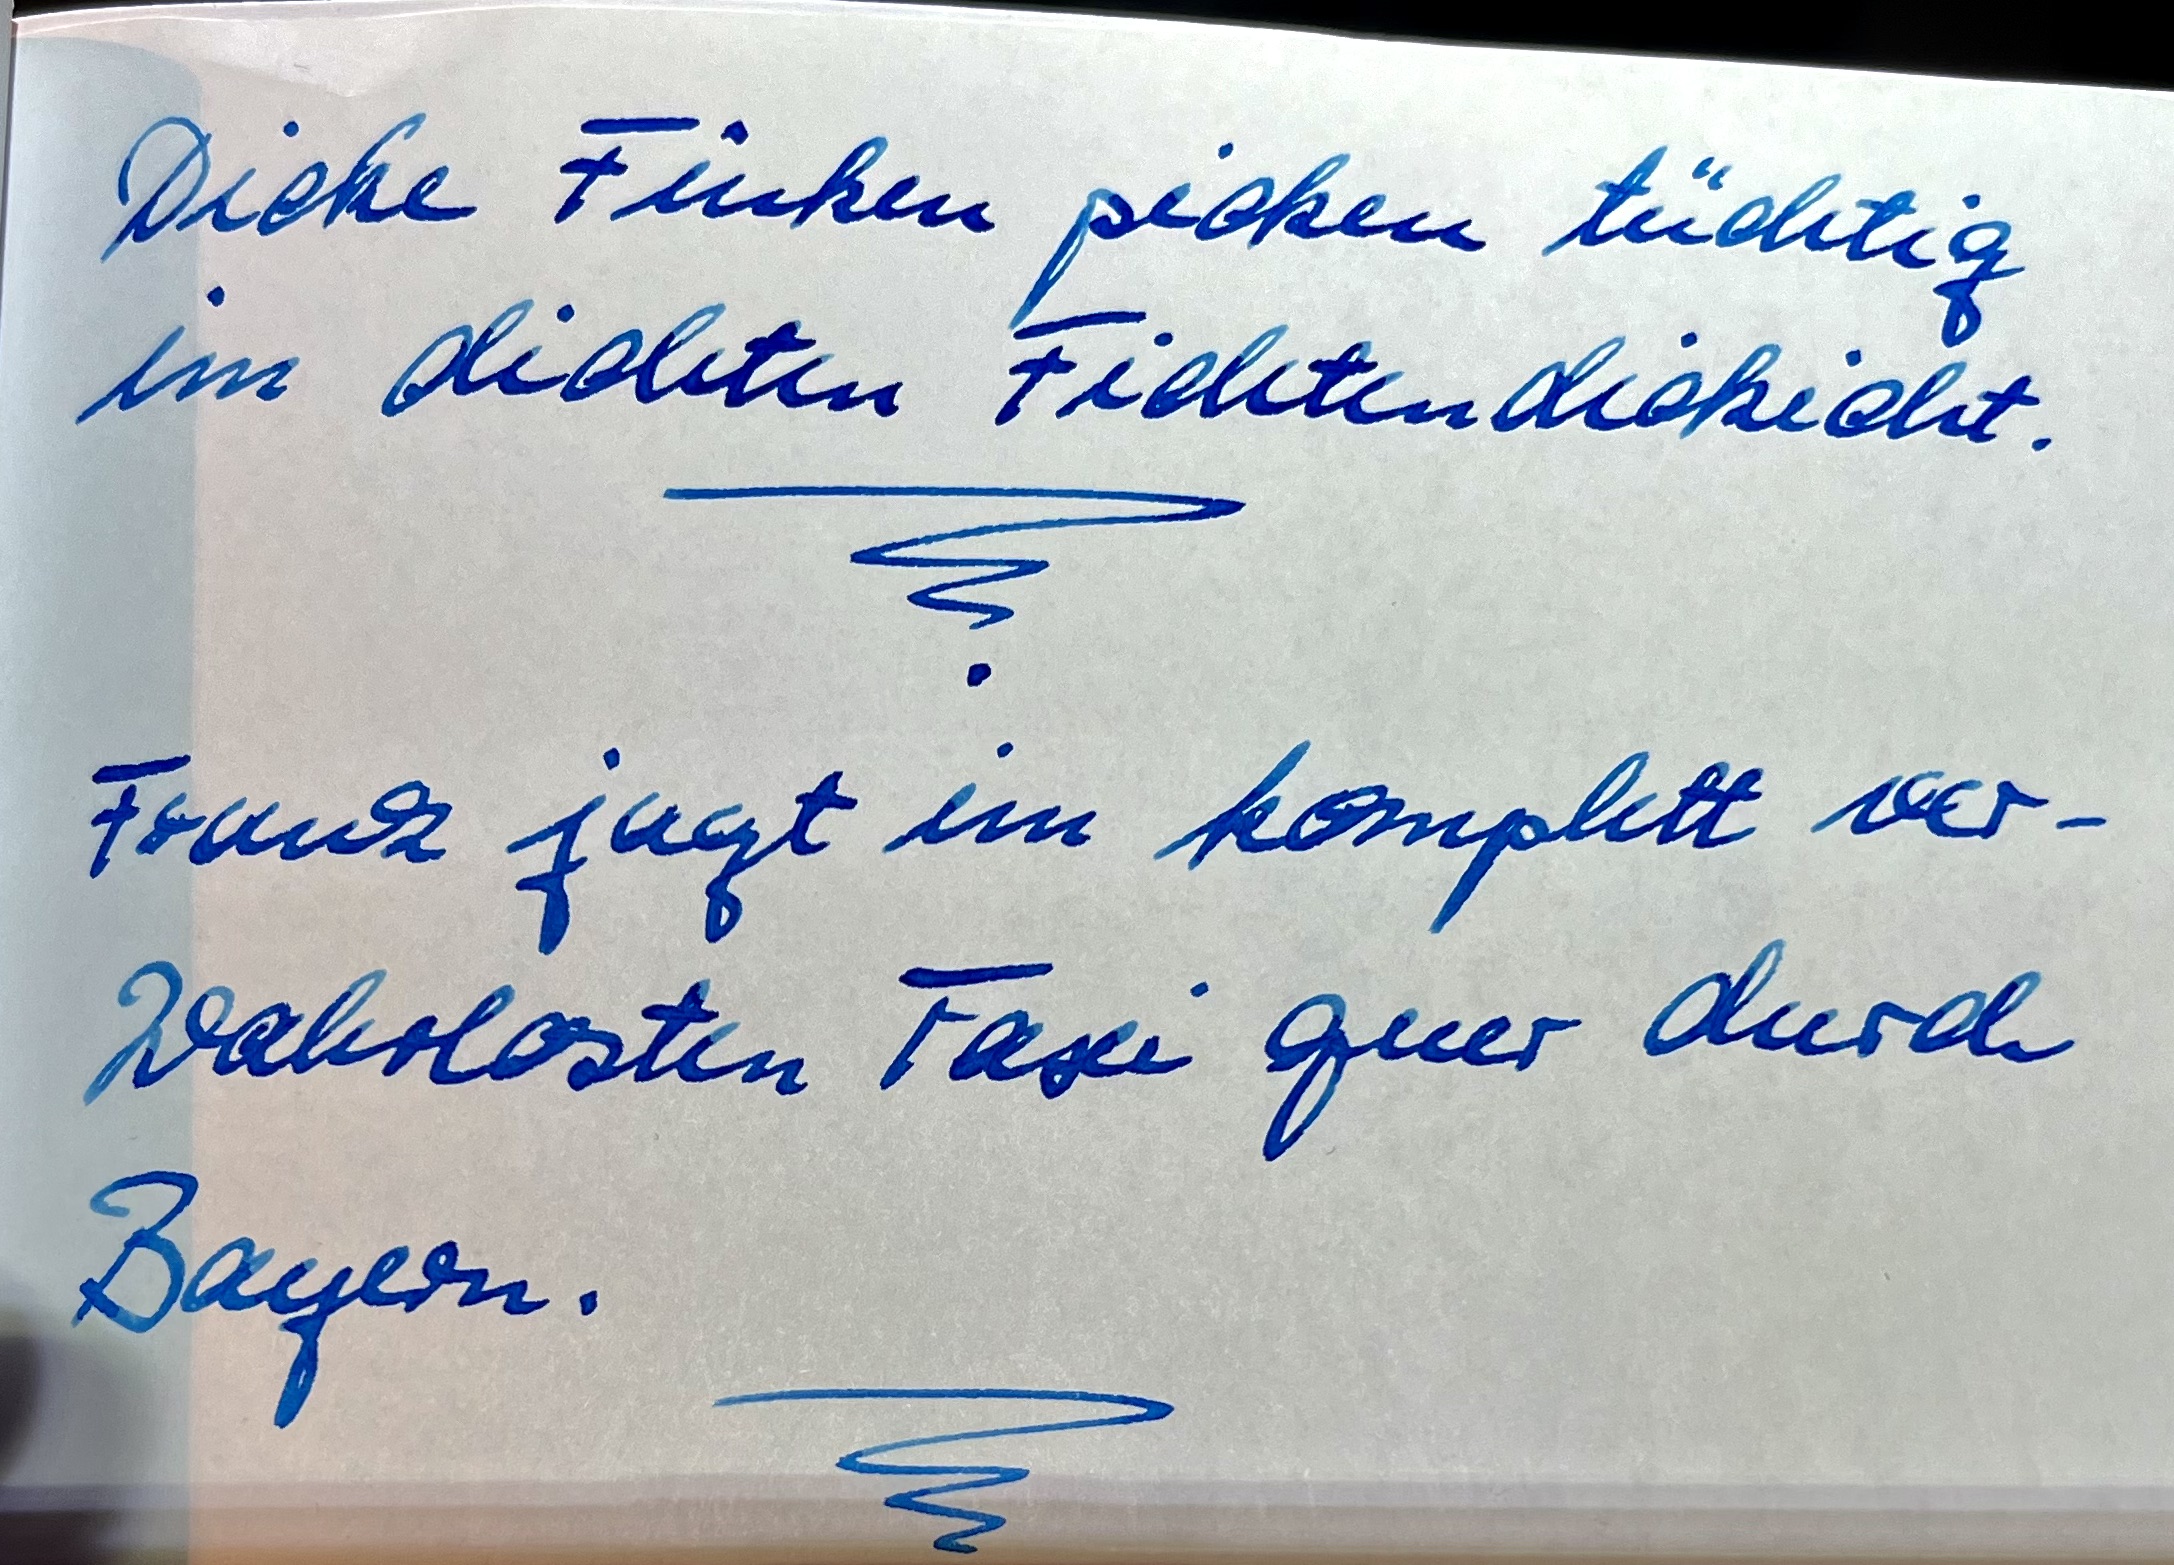 Dicke Finken picken tüchtig
im dichten Fichtendickicht.
Franz jagt im komplett ver-
wahrlosten Taxi quer durch
Bayern.